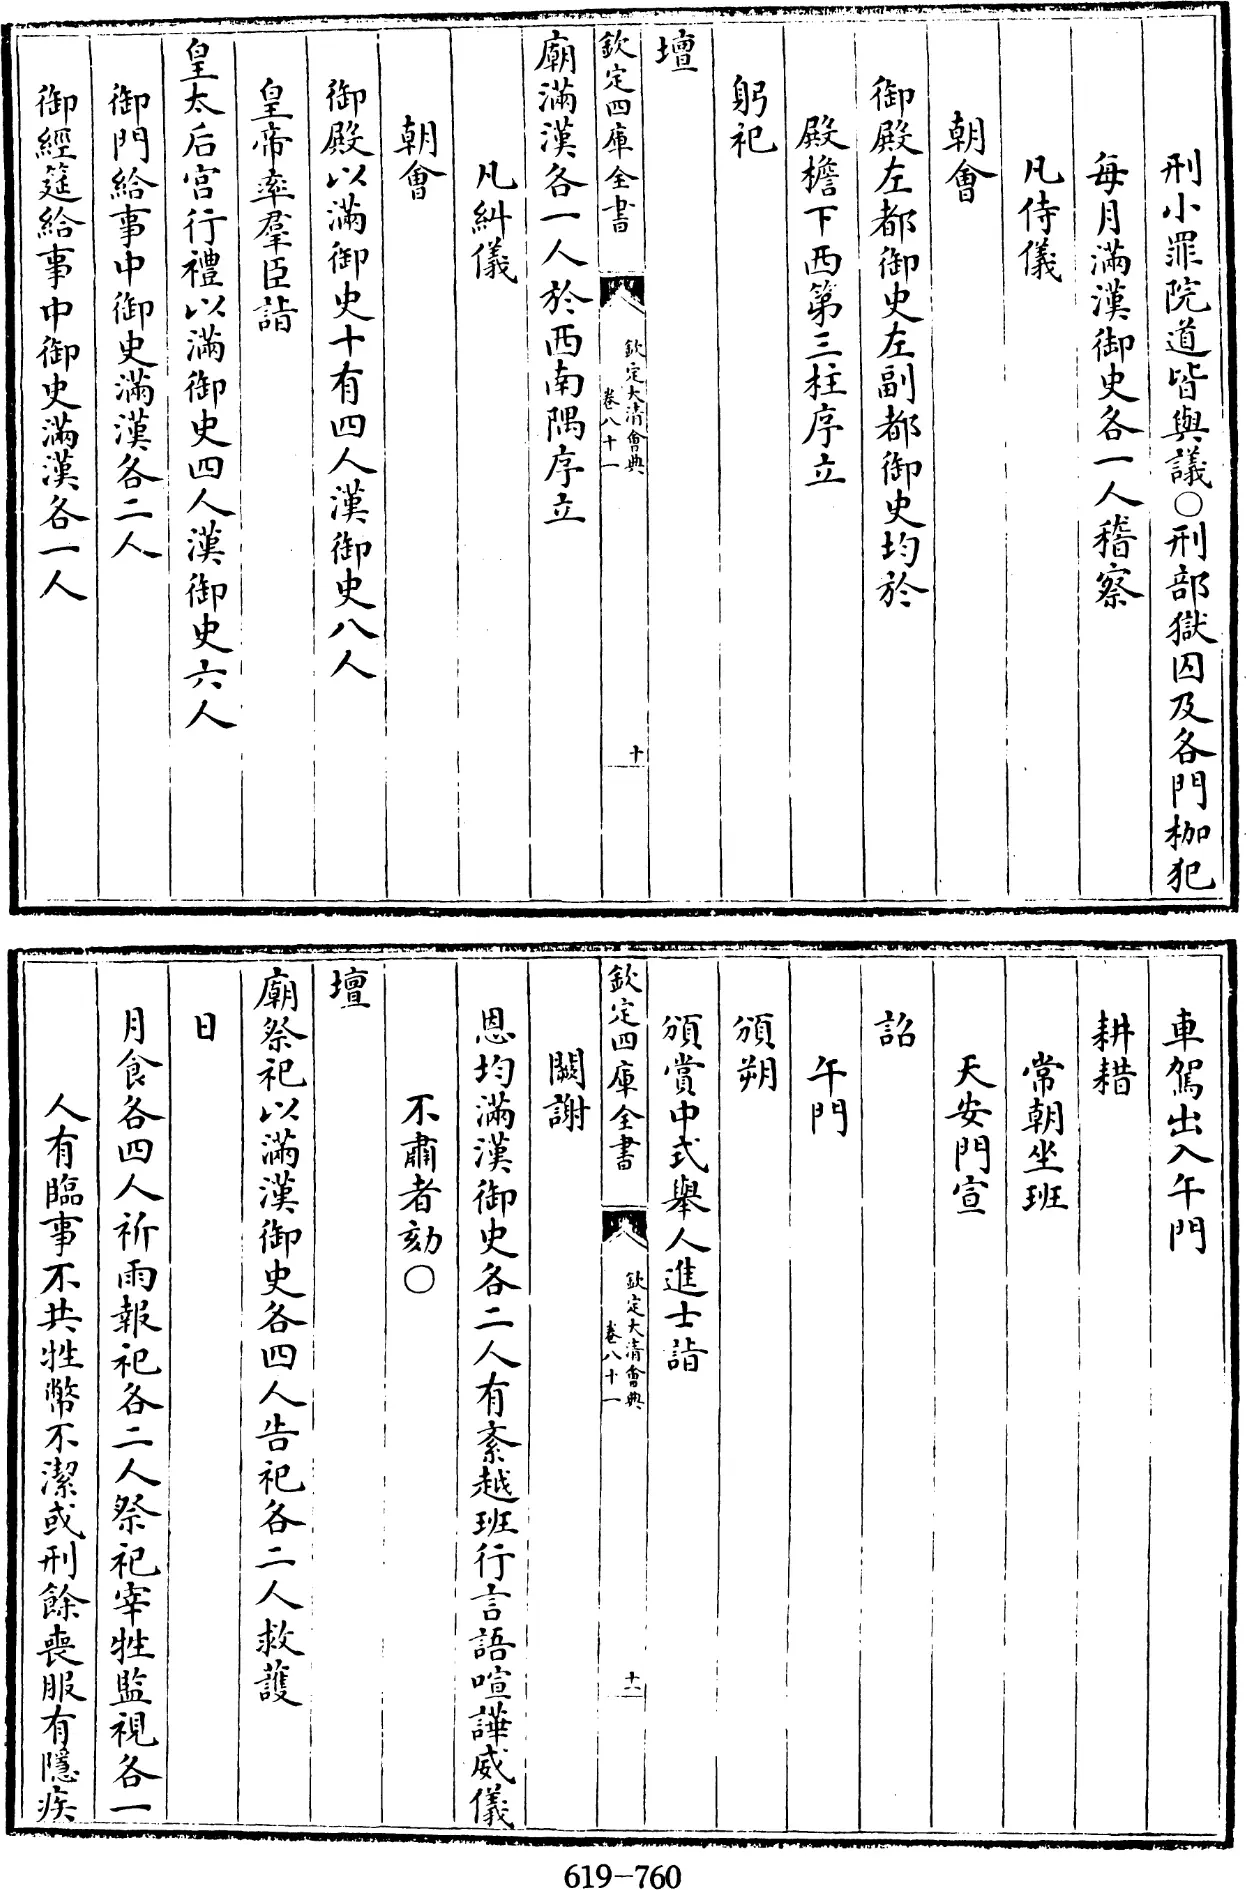 刑小罪院道皆與議〇刑部獄囚及各門枷犯
每月滿漢御史各一人稽察
凡侍儀
朝會
御殿左都御史左副都御史均於
殿檐下西第三柱序立
躬祀
壇
欽定四庫全書
欽定大清會典
卷八十一
十
廟滿漢各一人於西南隅序立
凡糾儀
朝會
御殿以滿御史十有四人漢御史八人
皇帝率羣臣詣
皇太后宮行禮以滿御史四人漢御史六人
御門給事中御史滿漢各二人
御經筵給事中御史滿漢各一人
車駕出入午門
耕耤
常朝坐班
天安門宣
詔
午門
頒朔
頒賞中式舉人進士詣
欽定四庫全書
欽定大清會典
卷八十一
十一
闕謝
恩均滿漢御史各二人有紊越班行言語喧譁威儀
不肅者劾〇
壇
廟祭祀以滿漢御史各四人告祀各二人救護
日
月食各四人祈雨報祀各二人祭祀宰牲監視各一
人有臨事不共牲幣不潔或刑餘喪服有隱疾
619-760